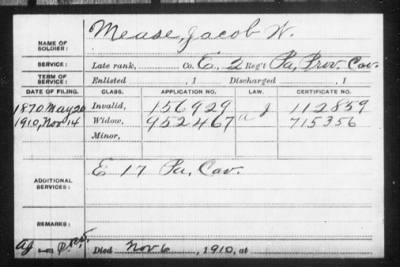 NAME OF SOLDIER: Mease, Jacob W.
SERVICE: Late rank, Co. E, 2 Reg't Pa, Prov. Cav.
TERM OF SERVICE: Enlisted , 1 Discharged , 1
DATE OF FILING. CLASS. APPLICATION NO. LAW. CERTIFICATE NO.
1870 May 20 Invalid, 156929 112859
1910, Nov 14 Widow, 952467 715356
Minor,
ADDITIONAL SERVICES: E 17 Pa, Cav.
REMARKS:
Died Nov 6, 1910, at